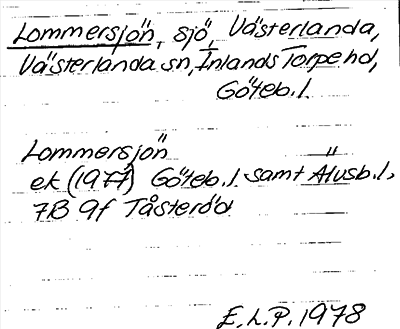 Lommersjön, sjö, Västerlanda,
Västerlanda sn, Inlands Torpe hd,
Göteb. l.
Lommersjön
ek (1977) Göteb. l. samt Älvsb. l.,
7B 9f Tåsteröd
E. L. P. 1978